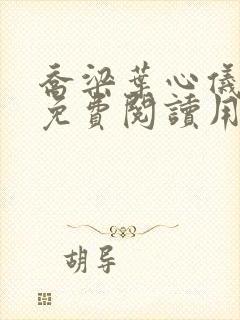 喬梁葉心儀
免費閱讀用
胡导